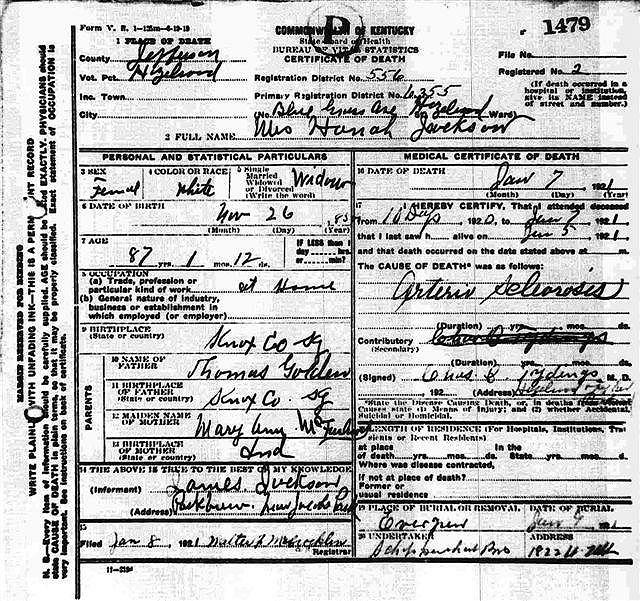 Form V. R. 1-125m-6-19-19
COMMONWEALTH OF KENTUCKY
1479
State Board of Health
BUREAU OF VITAL STATISTICS
CERTIFICATE OF DEATH
1 PLACE OF DEATH
County Jefferson
Vot. Pct. Hazelwood
Inc. Town
City
Registration District No. 556
Primary Registration District No. 6355
(No. Blue Grass Ave Hazelwood Ward)
File No.
Registered No. 2
(If death occurred in a
hospital or institution,
give its NAME instead
of street and number.)
2 FULL NAME Mrs Hanah Jackson
PERSONAL AND STATISTICAL PARTICULARS
3 SEX
Femal
4 COLOR OR RACE
White
5 Single
Married
Widowed
or Divorced
(Write the word)
Widow
6 DATE OF BIRTH
Nov 26
(Month) (Day) (Year)
7 AGE
87 yrs. 1 mos. 12 ds.
IF LESS than 1
day hrs.
or min?
8 OCCUPATION
(a) Trade, profession or
particular kind of work
at Home
(b) General nature of industry,
business or establishment in
which employed (or employer)
9 BIRTHPLACE
(State or country)
Knox Co
PARENTS
10 NAME OF
FATHER
Thomas Golden
11 BIRTHPLACE
OF FATHER
(State or country)
Knox Co
12 MAIDEN NAME
OF MOTHER
Mary Ann
13 BIRTHPLACE
OF MOTHER
(State or country)
Ind
14 THE ABOVE IS TRUE TO THE BEST OF MY KNOWLEDGE
(Informant) James Jackson
(Address)
15
Filed Jan 8, 1921
Registrar
11-3184
MEDICAL CERTIFICATE OF DEATH
16 DATE OF DEATH
Jan 7, 1921
(Month) (Day) (Year)
17
I HEREBY CERTIFY, That I attended deceased
from 10 Days, 1920, to Jan 7, 1921,
that I last saw h alive on Jan 5, 1921,
and that death occurred on the date stated above at m.
The CAUSE OF DEATH* was as follows:
Arterio Sclerosis
(Duration) yrs. mos. ds.
Contributory
(Secondary)
(Duration) yrs. mos. ds.
(Signed) M. D.
192 (Address)
*State the Disease Causing Death, or, in deaths from Violent
Causes state (1) Means of Injury; and (2) whether Accidental,
Suicidal or Homicidal.
LENGTH OF RESIDENCE (For Hospitals, Institutions, Transients
or Recent Residents)
At place In the
of death yrs. mos. ds. State yrs. mos. ds.
Where was disease contracted,
if not at place of death?
Former or
usual residence
19 PLACE OF BURIAL OR REMOVAL
DATE OF BURIAL
Jan 9, 1921
20 UNDERTAKER
ADDRESS
MARGIN RESERVED FOR BINDING
WRITE PLAINLY WITH UNFADING INK—THIS IS A PERMANENT RECORD
N. B.—Every item of information should be carefully supplied. AGE should be stated EXACTLY. PHYSICIANS should
state CAUSE OF DEATH in plain terms, so that it may be properly classified. Exact statement of OCCUPATION is
very important. See instructions on back of certificate.